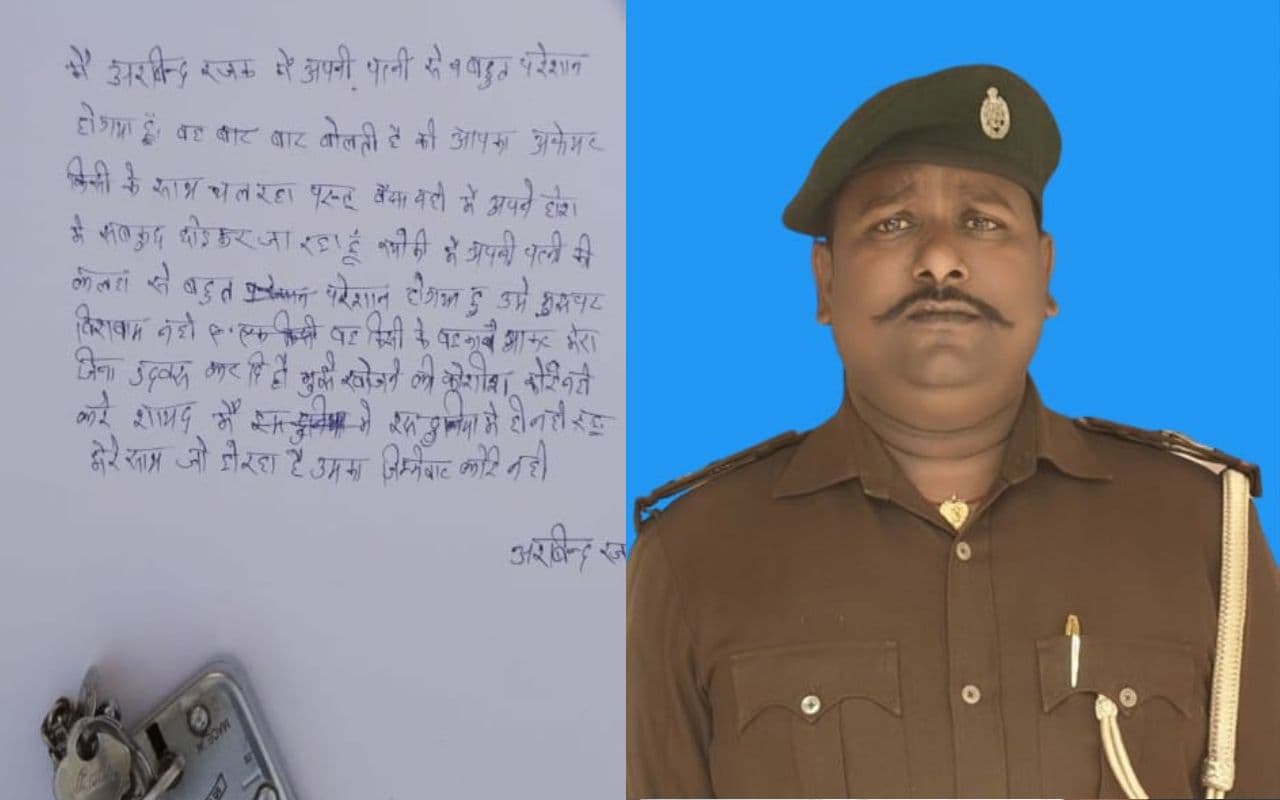 मैं अरबिन्द रजक मैं अपनी पत्नी से बहुत परेशान
होगया हूँ वह बार बार बोलती है की आपका अफेयर
किसी के साथ चल रहा परन्तु वैसा नही मैं अपने होश
मे सबकुछ छोड़कर जा रहा हूँ क्योंकी मैं अपनी पत्नी की
कलह से बहुत परेशान होगया हु उसे मुझपर
विशवास नही वह किसी के बहकावे आकर मेरा
जिना कर दि है मुझे खोजने की कोशीश कोई नही
करे शायद मैं इस दुनिया मे ही नही रहू
मेरे साथ जो हो रहा है उसका जिम्मेवार कोई नही
अरबिन्द